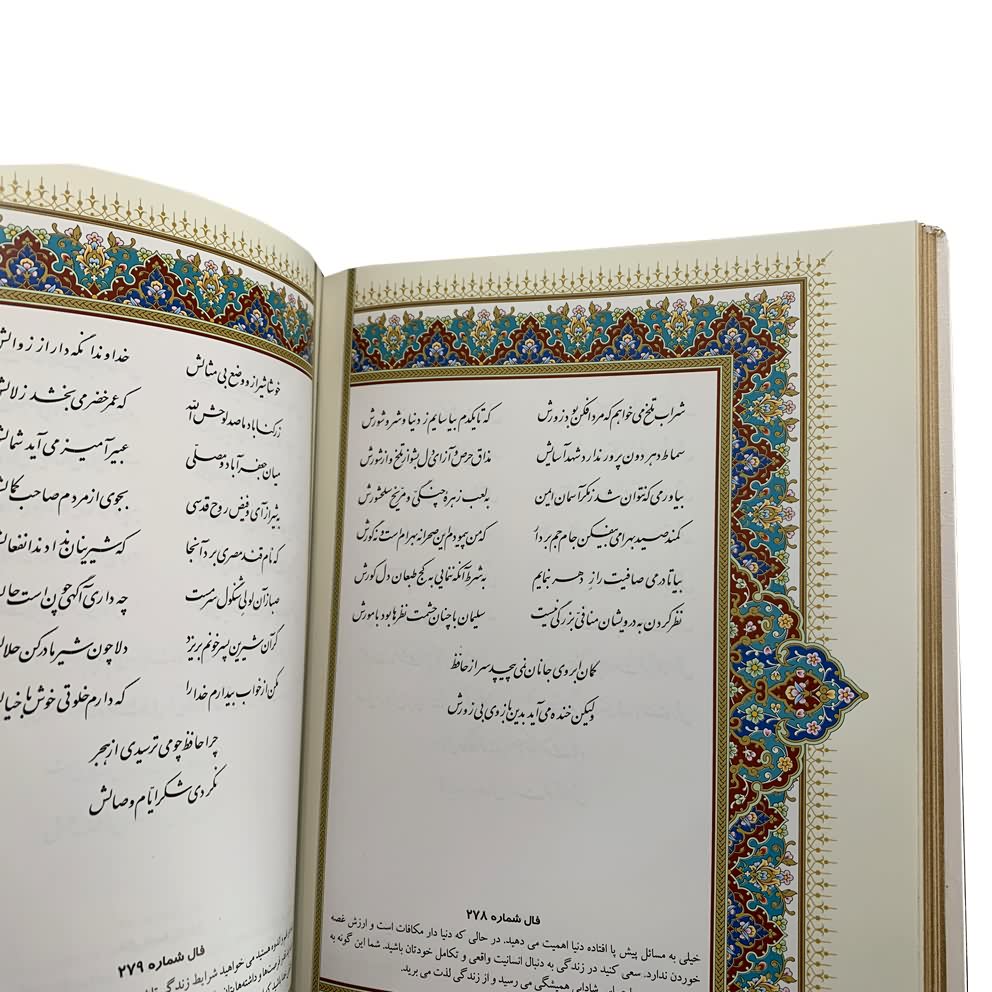 شراب تلخ می خواهم که مردافکن بود زورش که تا یکدم بیاسایم ز دنیا و شر و شورش
سماط دهر دون پرور ندارد شهد آسایش مذاق حرص و آز ای دل بشو از تلخ و از شورش
بیاور می که نتوان شد ز مکر آسمان ایمن به لعب زهره چنگی و مریخ سلحشورش
کمند صید بهرامی بیفکن جام جم بردار که من پیمودم این صحرا نه بهرام است و نه گورش
بیا تا در می صافیت راز دهر بنمایم به شرط آنکه ننمایی به کج طبعان دل کورش
نظر کردن به درویشان منافی بزرگی نیست سلیمان با چنان حشمت نظرها بود با مورش
کمان ابروی جانان نمی پیچد سر از حافظ
ولیکن خنده می آید بدین بازوی بی زورش
فال شماره ۲۷۸
خیلی به مسائل پیش پا افتاده دنیا اهمیت می دهید. در حالی که دنیا دار مکافات است و ارزش غصه
خوردن ندارد. سعی کنید در زندگی به دنبال انسانیت واقعی و تکامل خودتان باشید. شما این گونه به
شادابی همیشگی می رسید و از زندگی لذت می برید.
خوشا شیراز و وضع بی مثالش خداوندا نگه دار از زوالش
ز رکناباد ما صد لوحش الله که عمر خضر می بخشد زلالش
میان جعفرآباد و مصلی عبیرآمیز می آید شمالش
به شیراز آی و فیض روح قدسی بجوی از مردم صاحب کمالش
که نام قند مصری برد آنجا که شیرینان ندادند انفعالش
صبا زان لولی شنگول سرمست چه داری آگهی چون است حالش
گر آن شیرین پسر خونم بریزد دلا چون شیر مادر کن حلالش
مکن از خواب بیدارم خدا را که دارم خلوتی خوش با خیالش
چرا حافظ چو می ترسیدی از هجر
نکردی شکر ایام وصالش
فال شماره ۲۷۹
هستید می خواهید شرایط زندگی